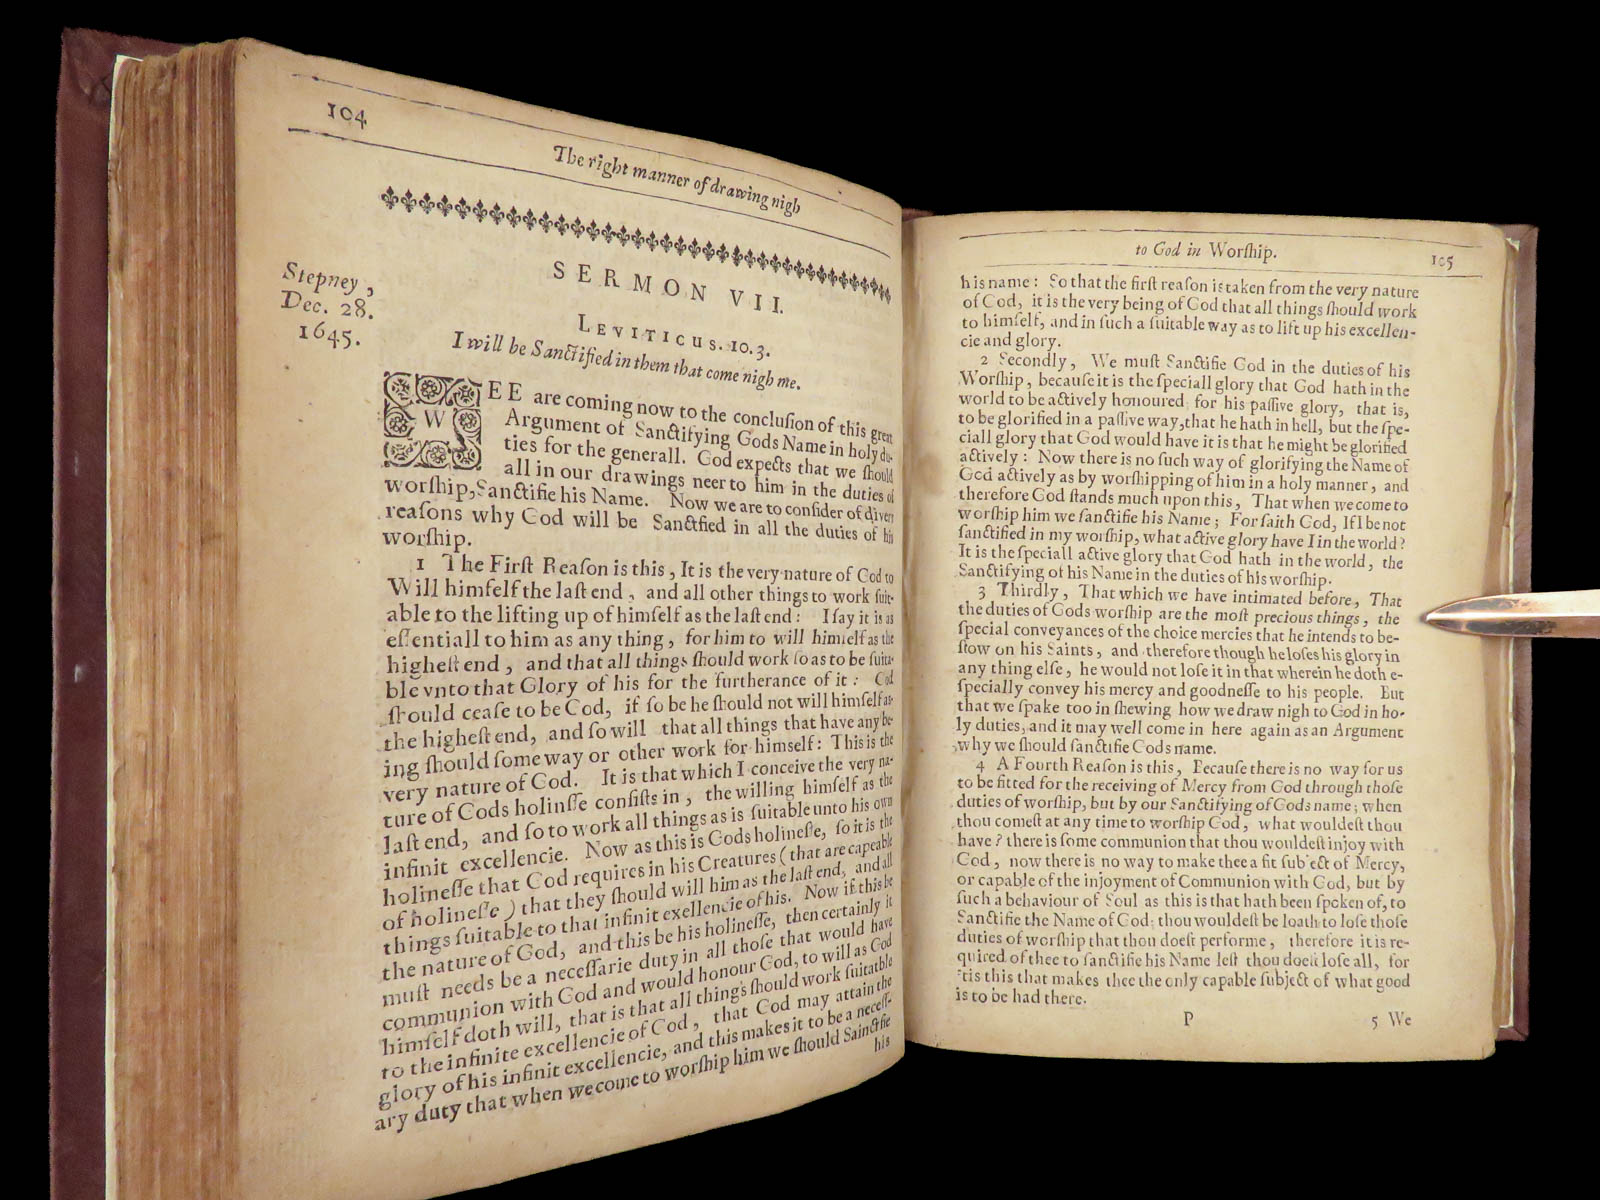 104
The right manner of drawing nigh
Stepney,
Dec. 28.
1645.
SERMON VII.
LEVITICUS. 10. 3.
I will be Sanctified in them that come nigh me.
WEE are coming now to the conclusion of this great
Argument of Sanctifying Gods Name in holy du-
ties for the generall. God expects that we should
all in our drawings neer to him in the duties of
worship, Sanctifie his Name. Now we are to consider of divers
reasons why God will be Sanctfied in all the duties of his
worship.
1 The First Reason is this, It is the very nature of God to
Will himself the last end, and all other things to work suit-
able to the lifting up of himself as the last end: I say it is as
essentiall to him as any thing, for him to will himself as the
highest end, and that all things should work so as to be suita-
ble vnto that Glory of his for the furtherance of it: God
should cease to be God, if so be he should not will himself as
the highest end, and so will that all things that have any be-
ing should some way or other work for himself: This is the
very nature of God. It is that which I conceive the very na-
ture of Gods holinsse consists in, the willing himself as the
last end, and so to work all things as is suitable unto his own
infinit excellencie. Now as this is Gods holinesse, so it is the
holinesse that God requires in his Creatures (that are capeable
of holinesse) that they should will him as the last end, and all
things suitable to that infinit exellencie of his. Now if this be
the nature of God, and this be his holinesse, then certainly it
must needs be a necessarie duty in all those that would have
communion with God and would honour God, to will as God
himself doth will, that is that all things should work suitatble
to the infinite excellencie of God, that God may attain the
glory of his infinit excellencie, and this makes it to be a necess-
ary duty that when we come to worship him we should Sainctifie
his
to God in Worship.
105
his name: So that the first reason is taken from the very nature
of God, it is the very being of God that all things should work
to himself, and in such a suitable way as to lift up his excellen-
cie and glory.
2 Secondly, We must Sanctifie God in the duties of his
Worship, because it is the speciall glory that God hath in the
world to be actively honoured for his passive glory, that is,
to be glorified in a passive way, that he hath in hell, but the spe-
ciall glory that God would have it is that he might be glorified
actively: Now there is no such way of glorifying the Name of
God actively as by worshipping of him in a holy manner, and
therefore God stands much upon this, That when we come to
worship him we sanctifie his Name; For saith God, If I be not
sanctified in my worship, what active glory have I in the world?
It is the speciall active glory that God hath in the world, the
Sanctifying of his Name in the duties of his worship.
3 Thirdly, That which we have intimated before, That
the duties of Gods worship are the most precious things, the
special conveyances of the choice mercies that he intends to be-
stow on his Saints, and therefore though he loses his glory in
any thing else, he would not lose it in that wherein he doth e-
specially convey his mercy and goodnesse to his people. But
that we spake too in shewing how we draw nigh to God in ho-
ly duties, and it may well come in here again as an Argument
why we should sanctifie Gods name.
4 A Fourth Reason is this, Because there is no way for us
to be fitted for the receiving of Mercy from God through those
duties of worship, but by our Sanctifying of Gods name; when
thou comest at any time to worship God, what wouldest thou
have? there is some communion that thou wouldest injoy with
God, now there is no way to make thee a fit subject of Mercy,
or capable of the injoyment of Communion with God, but by
such a behaviour of Soul as this is that hath been spoken of, to
Sanctifie the Name of God: thou wouldest be loath to lose those
duties of worship that thou doest performe, therefore it is re-
quired of thee to sanctifie his Name lest thou doest lose all, for
'tis this that makes thee the only capable subject of what good
is to be had there.
P
5 We